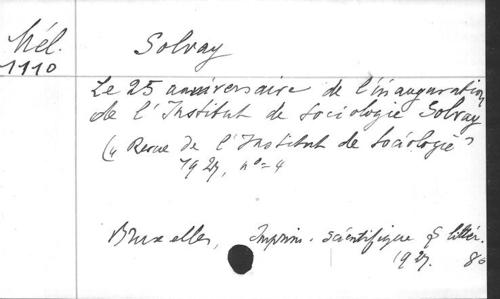 Mél.
1110
Solvay
Le 25 anniversaire de l'inauguration
de l'Institut de Sociologie Solvay
(„ Revue de l'Institut de Sociologie"
1927, n°=4
Bruxelles, Imprim. scientifique & littér.
1927. 8°